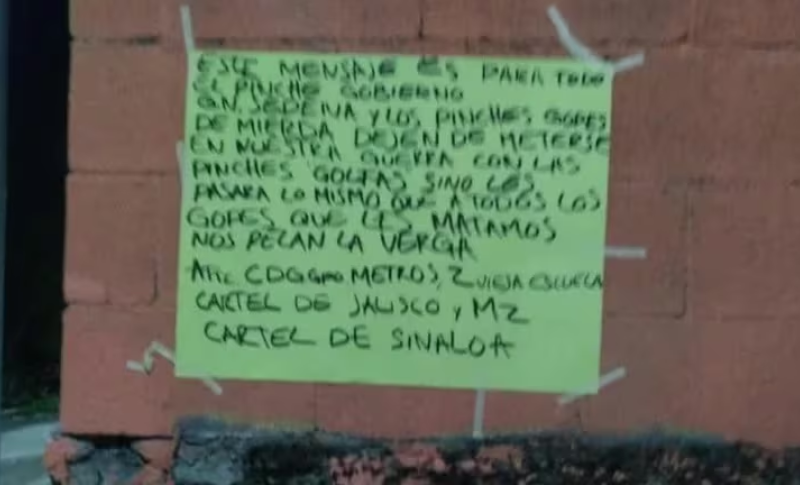 ESTE MENSAJE ES PARA TODO
EL PINCHE GOBIERNO
GN. SEDENA Y LOS PINCHES GOPES
DE MIERDA DEJEN DE METERSE
EN NUESTRA GUERRA CON LAS
PINCHES GOLFAS SINO LES
PASARA LO MISMO QUE A TODOS LOS
GOPES QUE LES MATAMOS
NOS PELAN LA VERGA
ATTE CDG GPO METROS, Z VIEJA ESCUELA
CARTEL DE JALISCO Y MZ
CARTEL DE SINALOA